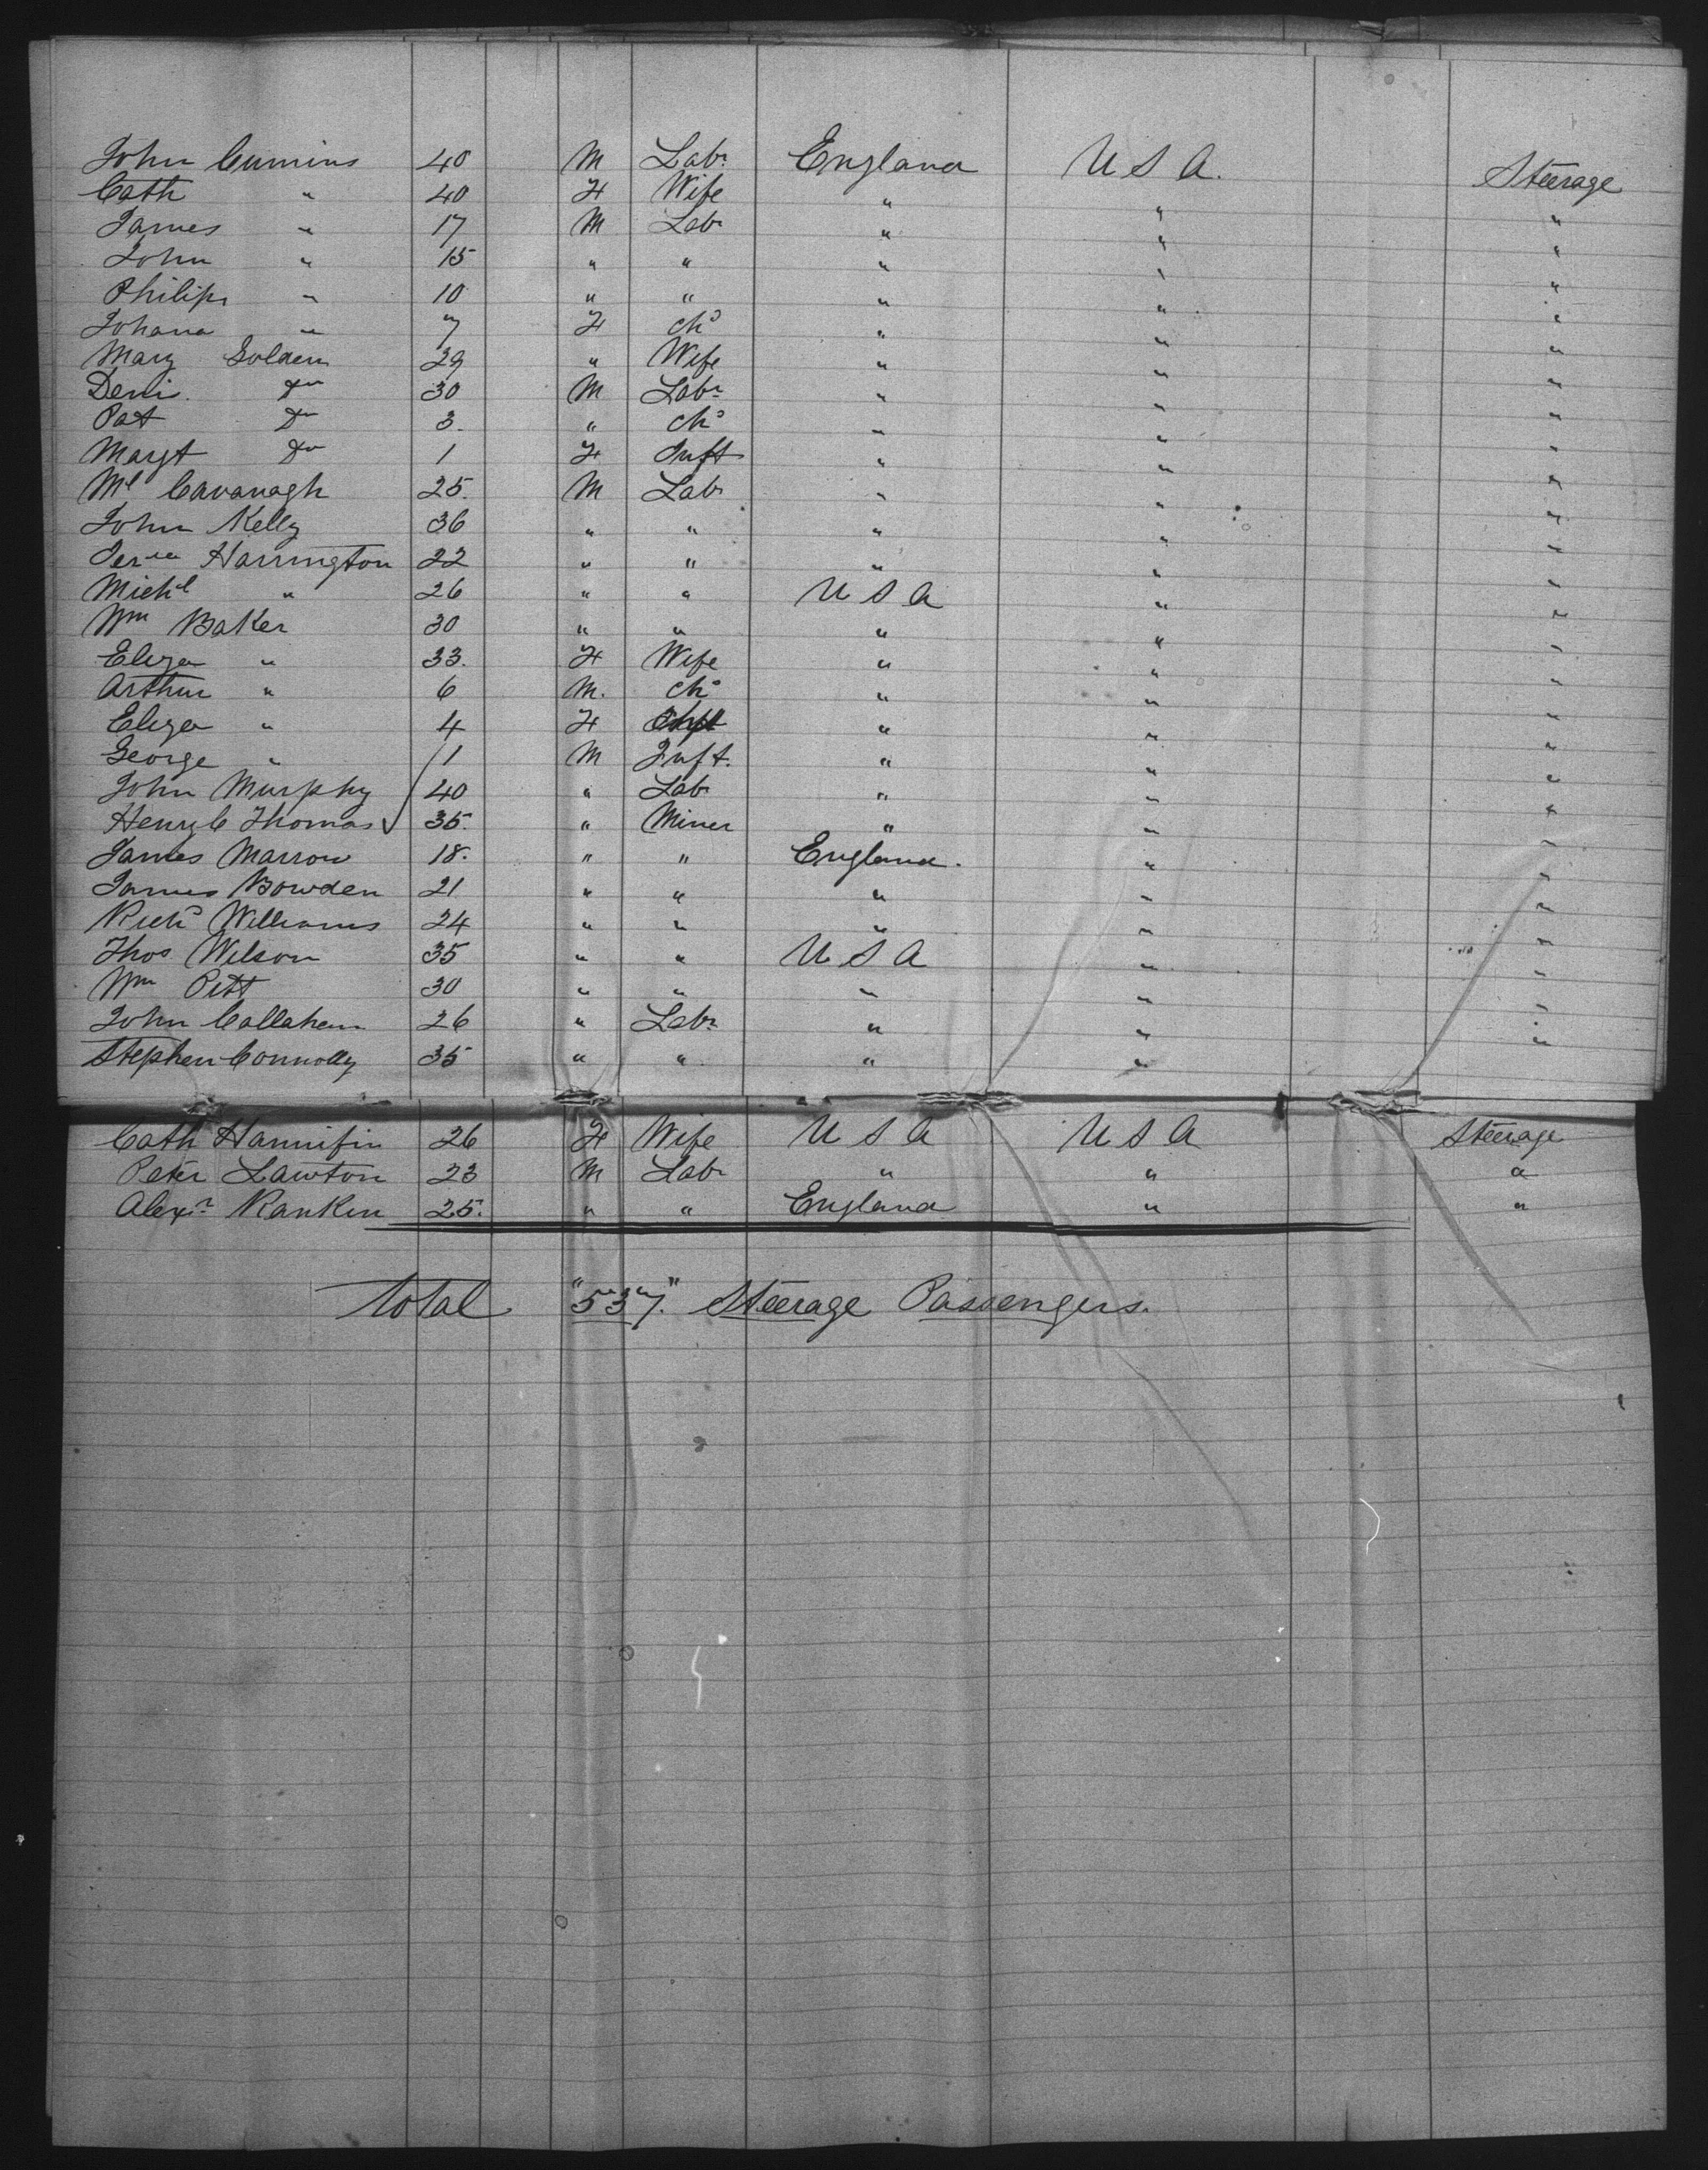 John Cumins 40 M Labr England U S A. Steerage
Cath " 40 F Wife " " "
James " 17 M Labr " " "
John " 15 " " " " "
Philip " 10 " " " " "
Johana " 7 F chd " " "
Mary Golden 29 " Wife " " "
Denis Do 30 M Labr " " "
Pat Do 3. " chd " " "
Margt Do 1 F Inft " " "
Ml Cavanagh 25. M Labr " " "
John Kelly 36 " " " " "
Harrington 22 " " " " "
Michl " 26 " " U S A " "
Wm Baker 30 " " " " "
Eliza " 33. F Wife " " "
Arthur " 6 M. chd " " "
Eliza " 4 F " " "
George " 1 M Inft. " " "
John Murphy 40 " Lab " " "
Henry C Thomas 35. " Miner " " "
James Marrow 18. " " England. " "
James Bowden 21 " " " " "
Richd Williams 24 " " " " "
Thos Wilson 35 " " U S A " "
Wm Pitt 30 " " " " "
John Callahan 26 " Labr " " "
Stephen Connolly 35 " " " " "
Cath Hannifin 26 F Wife U S A U S A Steerage
Peter Lawton 23 M Labr " " "
Alexr Rankin 25. " " England " "
Total "537." Steerage Passengers.